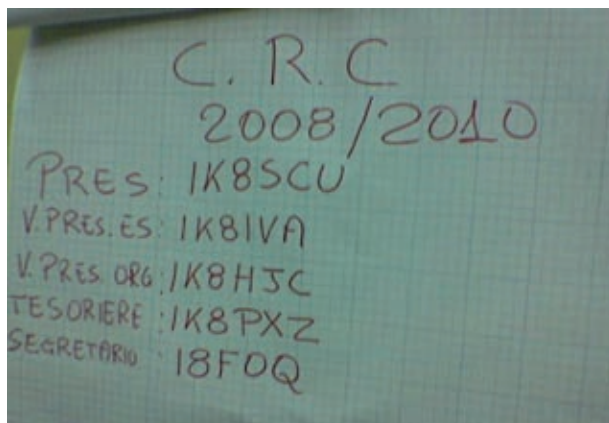 C. R. C
2008/2010
PRES: IK8SCU
V.PRES.ES: IK8IVA
V.PRES.ORG: IK8HJC
TESORIERE: IK8PXZ
SEGRETARIO: I8FOQ